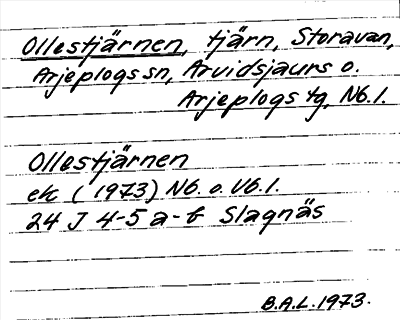 Ollestjärnen, tjärn, Storavan,
Arjeplogs sn, Arvidsjaurs o.
Arjeplogs tg, Nb.l.
Ollestjärnen
ek (1973) Nb. o. Vb.l.
24 J 4-5 a-b Slagnäs
B.A.L. 1973.